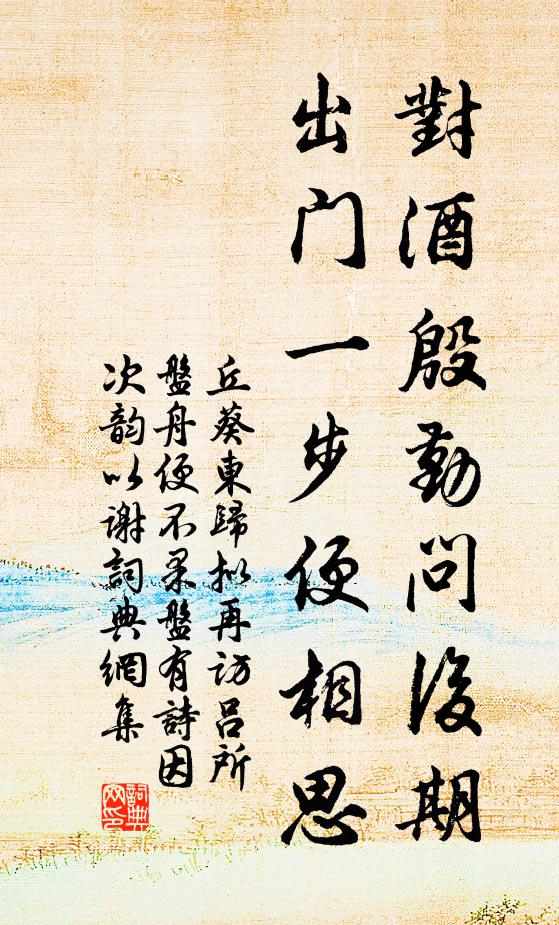 對酒殷勤問後期
出门一步便相思
丘葵東歸拟再访吕所
盤舟便不果盤有詩因
次韵以谢詞典網集
詞典
网印